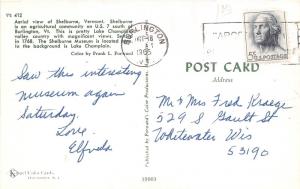 Vt 412
Aerial view of Shelburne, Vermont. Shelburne
is an agricultural community on U.S. 7 south of
Burlington, Vt. This is pretty Lake Champlain
valley country with magnificent views. Settled
in 1768. The Shelburne Museum is located here.
In the background is Lake Champlain.
Color by Frank L. Forward
BURLINGTON
1965
VT.
5¢ U.S. POSTAGE
POST CARD
Address
Saw this interesting
museum again
Saturday.
Love,
Elfreda
Mr & Mrs Fred Kraege
529 S Gault St
Whitewater Wis
53190